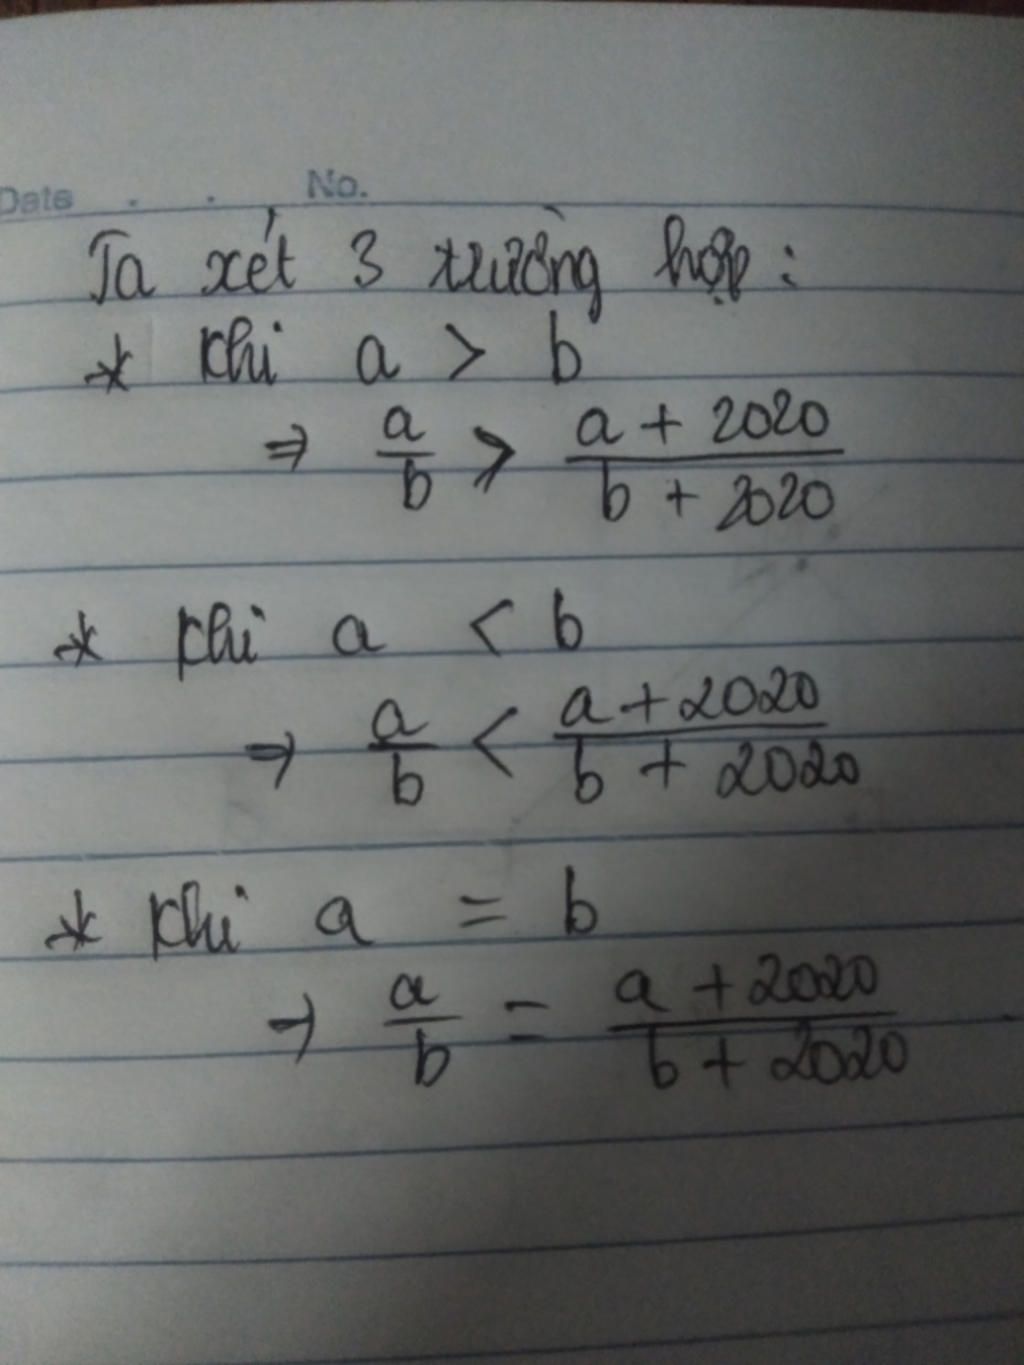 Date . . No.
Ta xét 3 trường hợp:
* Khi a > b
⇒ a/b > (a + 2020)/(b + 2020)
* Khi a < b
⇒ a/b < (a + 2020)/(b + 2020)
* Khi a = b
⇒ a/b = (a + 2020)/(b + 2020)